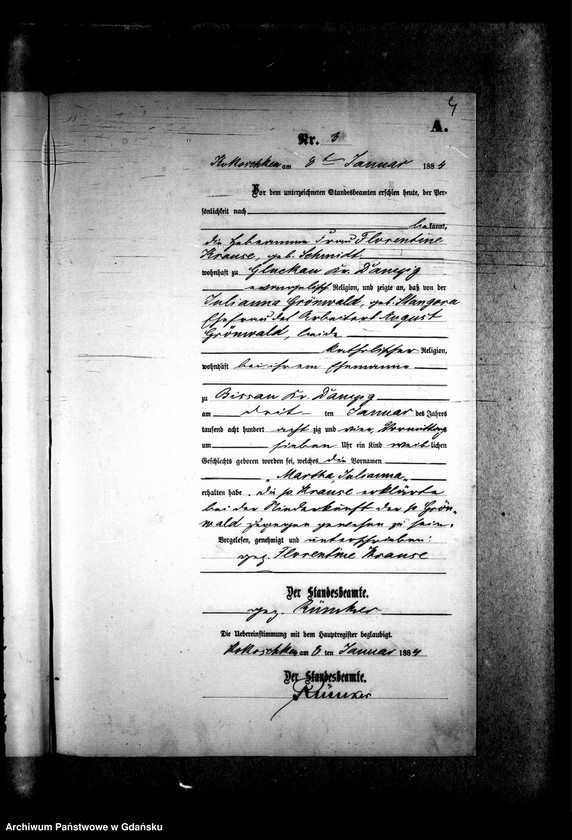 4
A.
Nr. 3
Kokoschken am 8ten Januar 1884
Vor dem unterzeichneten Standesbeamten erschien heute, der Per-
sönlichkeit nach
bekannt,
die Hebeamme Frau Florentine
Krause, geb. Schmidt
wohnhaft zu Gluckau Kr. Danzig
evangelisch Religion, und zeigte an, daß von der
Julianna Grönwald, geb. Mangora
Ehefrau des Arbeiters August
Grönwald, beide
katholischer Religion,
wohnhaft bei ihrem Ehemanne
zu Bissau Kr. Danzig
am drei ten Januar des Jahres
tausend acht hundert acht zig und vier, Vormittag
um sieben Uhr ein Kind weiblichen
Geschlechts geboren worden sei, welches die Vornamen
"Martha, Julianna"
erhalten habe. Die p. Krause erklärte
bei der Niederkunft der p. Grön-
wald zugegen gewesen zu sein.
Vorgelesen, genehmigt und unterschrieben:
gez. Florentine Krause
Der Standesbeamte.
gez. Rümker
Die Uebereinstimmung mit dem Hauptregister beglaubigt.
Kokoschken am 8 ten Januar 1884
Der Standesbeamte.
Rümker
Archiwum Państwowe w Gdańsku